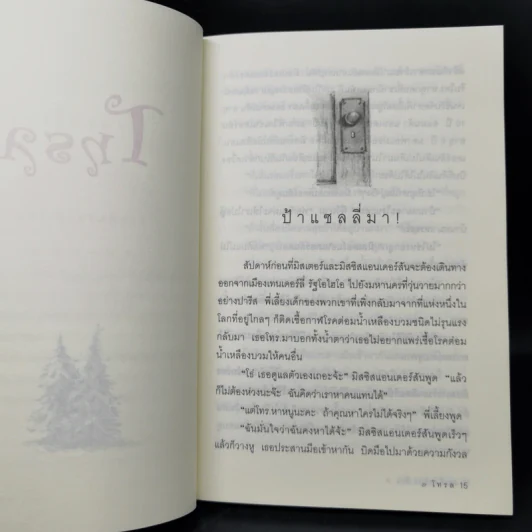 โทรล
ป้าแซลลี่มา!
สัปดาห์ก่อนที่มิสเตอร์และมิสซิสแอนเดอร์สันจะต้องเดินทาง
ออกจากเมืองเทนเดอร์ลี่ รัฐโอไฮโอ ไปยังมหานครที่วุ่นวายมากกว่า
อย่างปารีส พี่เลี้ยงเด็กของพวกเขาที่เพิ่งกลับมาจากที่แห่งหนึ่งใน
โลกที่อยู่ไกลๆ ก็ติดเชื้อกาฬโรคต่อมน้ำเหลืองบวมชนิดไม่รุนแรง
กลับมา เธอโทร.มาบอกทั้งน้ำตาว่าเธอไม่อยากแพร่เชื้อโรคต่อม
น้ำเหลืองบวมให้คนอื่น
"โธ่ เธอดูแลตัวเองเถอะจ้ะ" มิสซิสแอนเดอร์สันพูด "แล้ว
ก็ไม่ต้องห่วงนะจ๊ะ ฉันคิดว่าเราหาคนแทนได้"
"แต่โทร.หาหนูนะคะ ถ้าคุณหาใครไม่ได้จริงๆ" พี่เลี้ยงพูด
"ฉันมั่นใจว่าฉันคงหาได้จ้ะ" มิสซิสแอนเดอร์สันพูดเร็วๆ
แล้วก็วางหู เธอประสานมือเข้าหากัน บิดมือไปมาด้วยความกังวล
โทรล 15